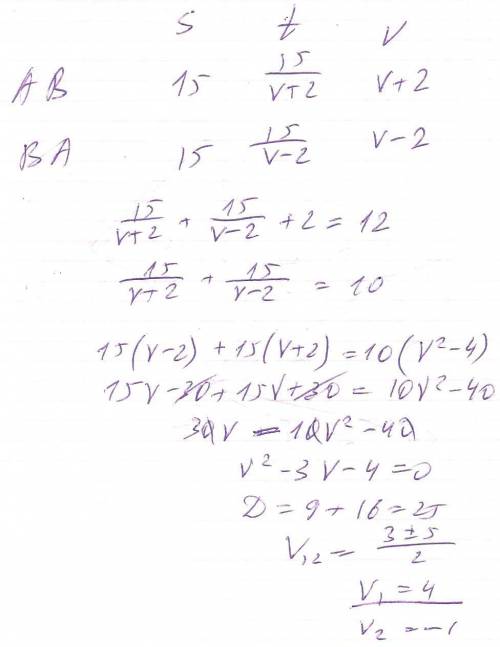 S t V
AB 15 15/(V+2) V+2
BA 15 15/(V-2) V-2
15/(V+2) + 15/(V-2) + 2 = 12
15/(V+2) + 15/(V-2) = 10
15(V-2) + 15(V+2) = 10(V²-4)
15V-30+15V+30 = 10V²-40
30V = 10V²-40
V²-3V-4=0
D=9+16=25
V₁,₂ = (3±5)/2
V₁ = 4
V₂ = -1